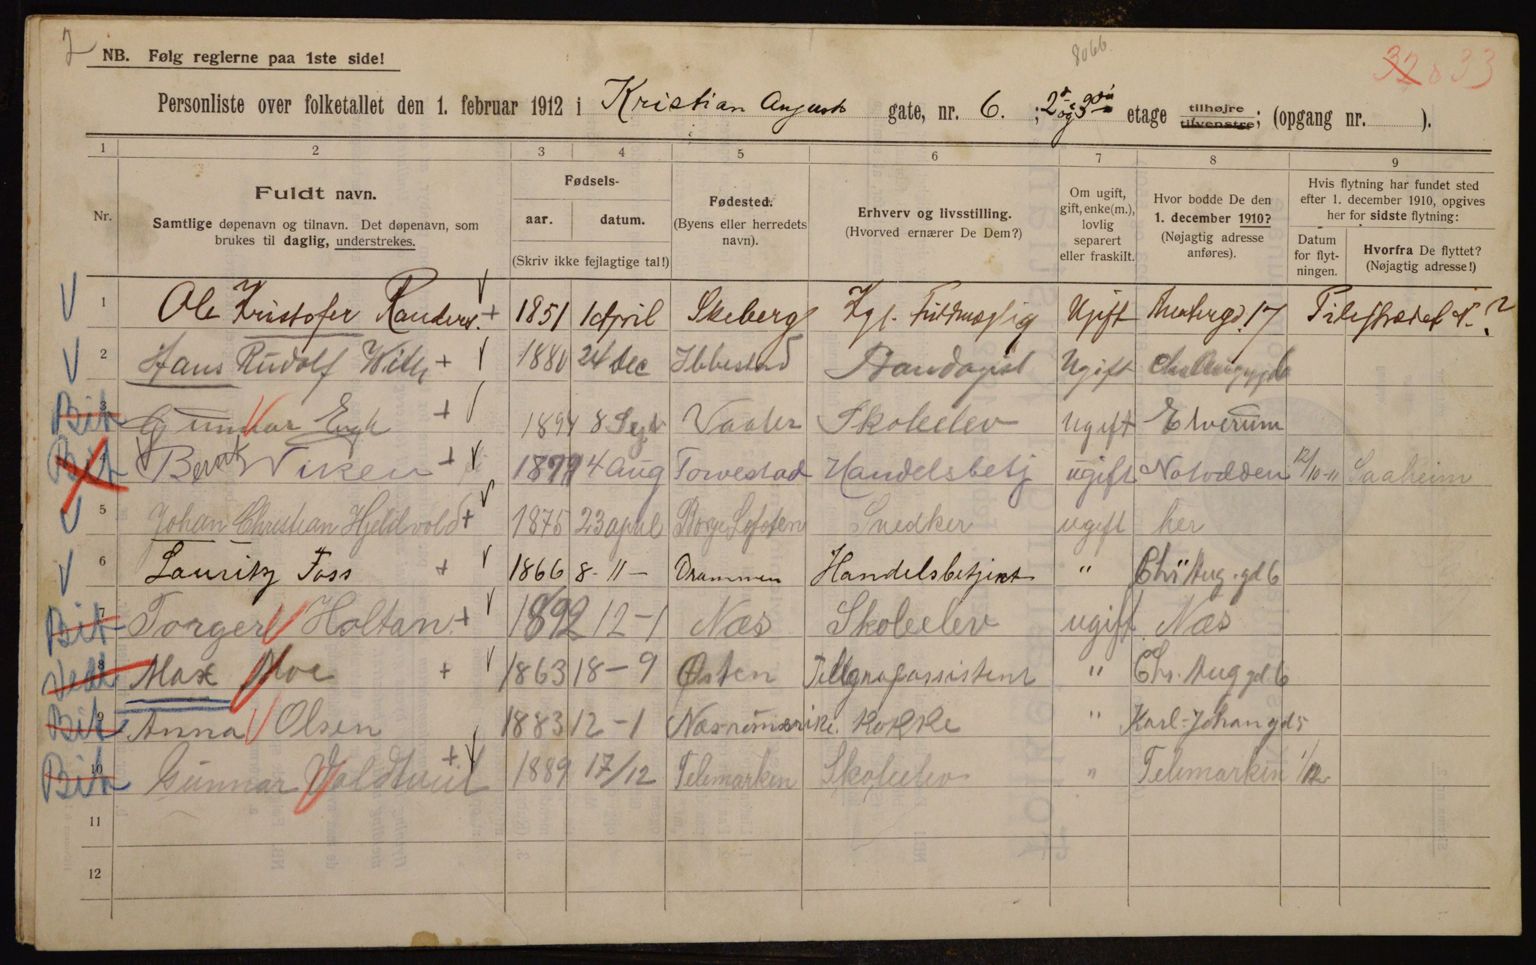 2
8066
32833
NB. Følg reglerne paa 1ste side!
Personliste over folketallet den 1. februar 1912 i Kristian Augusts gate, nr. 6. ; 2 og 3 etage tilhøjre tilvenstre; (opgang nr. ).
1 2 3 4 5 6 7 8 9
Nr.
Fuldt navn.
Samtlige døpenavn og tilnavn. Det døpenavn, som
brukes til daglig, understrekes.
Fødsels-
aar. datum.
(Skriv ikke fejlagtige tal!)
Fødested.
(Byens eller herredets
navn).
Erhverv og livsstilling.
(Hvorved ernærer De Dem?)
Om ugift,
gift, enke(m.),
lovlig
separert
eller fraskilt.
Hvor bodde De den
1. december 1910?
(Nøjagtig adresse
anføres).
Hvis flytning har fundet sted
efter 1. december 1910, opgives
her for sidste flytning:
Datum
for flyt-
ningen.
Hvorfra De flyttet?
(Nøjagtig adresse!)
1 Ole Kristofer Randers + 1851 1 April Skeberg Kgl. Ugift 17
2 Hans Rudolf With + 1880 24 dec Ibbestad Bandagist Ugift Chr Augustgd 6
Bit 3 Gunnar Engh + 1894 8 Sept Vaaler Skoleelev ugift Elverum
Bit 4 Bernt Wiken + 4 Aug Torvestad Handelsbetj ugift Notodden 12/10-11 Saaheim
5 Johan Christian Hjeldvold + 1875 23 april Borge Lofoten Snedker ugift her
6 Lauritz Foss + 1866 8-11- Drammen Handelsbetjent " Chr Aug. gd 6
Bit 7 Torger Holtan + 1892 12-1 Næs Skoleelev ugift Næs
8 Max Moe + 1863 18-9 Østen Telegrafassistent " Chr. Aug gd 6
Bit 9 Anna Olsen 1883 12-1 Næs romerike. Kokke " Karl-Johan gd 5
Bit 10 Gunnar + 1889 17/12 Telemarken Skoleelev " Telemarken 1/12
11
12